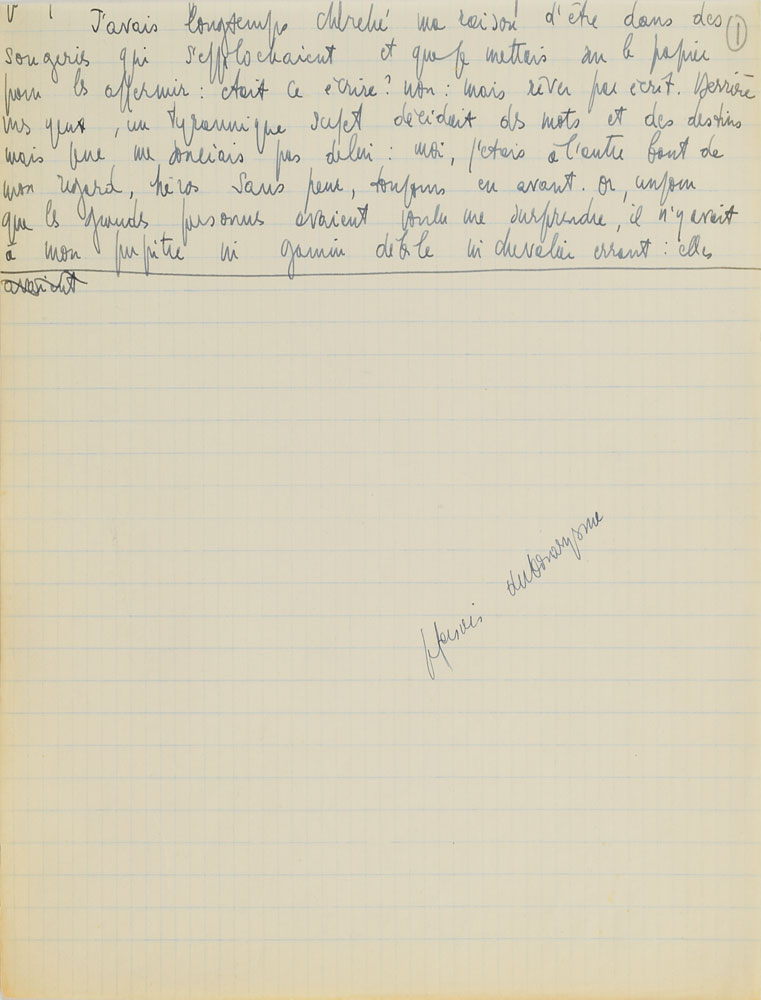 J'avais longtemps cherché ma raison d'être dans des ①
songeries qui s'effilochaient et que je mettais sur le papier
pour les affermir : était ce écrire? non : mais rêver par écrit. Derrière
mes yeux, un tyrannique sujet décidait des mots et des destins
mais je ne me souciais pas de lui : moi, j'étais à l'autre bout de
mon regard, héros sans peur, toujours en avant. Or, un jour
que les grandes personnes avaient voulu me surprendre, il n'y avait
à mon pupitre ni gamin débile ni chevalier errant : elles
avaient